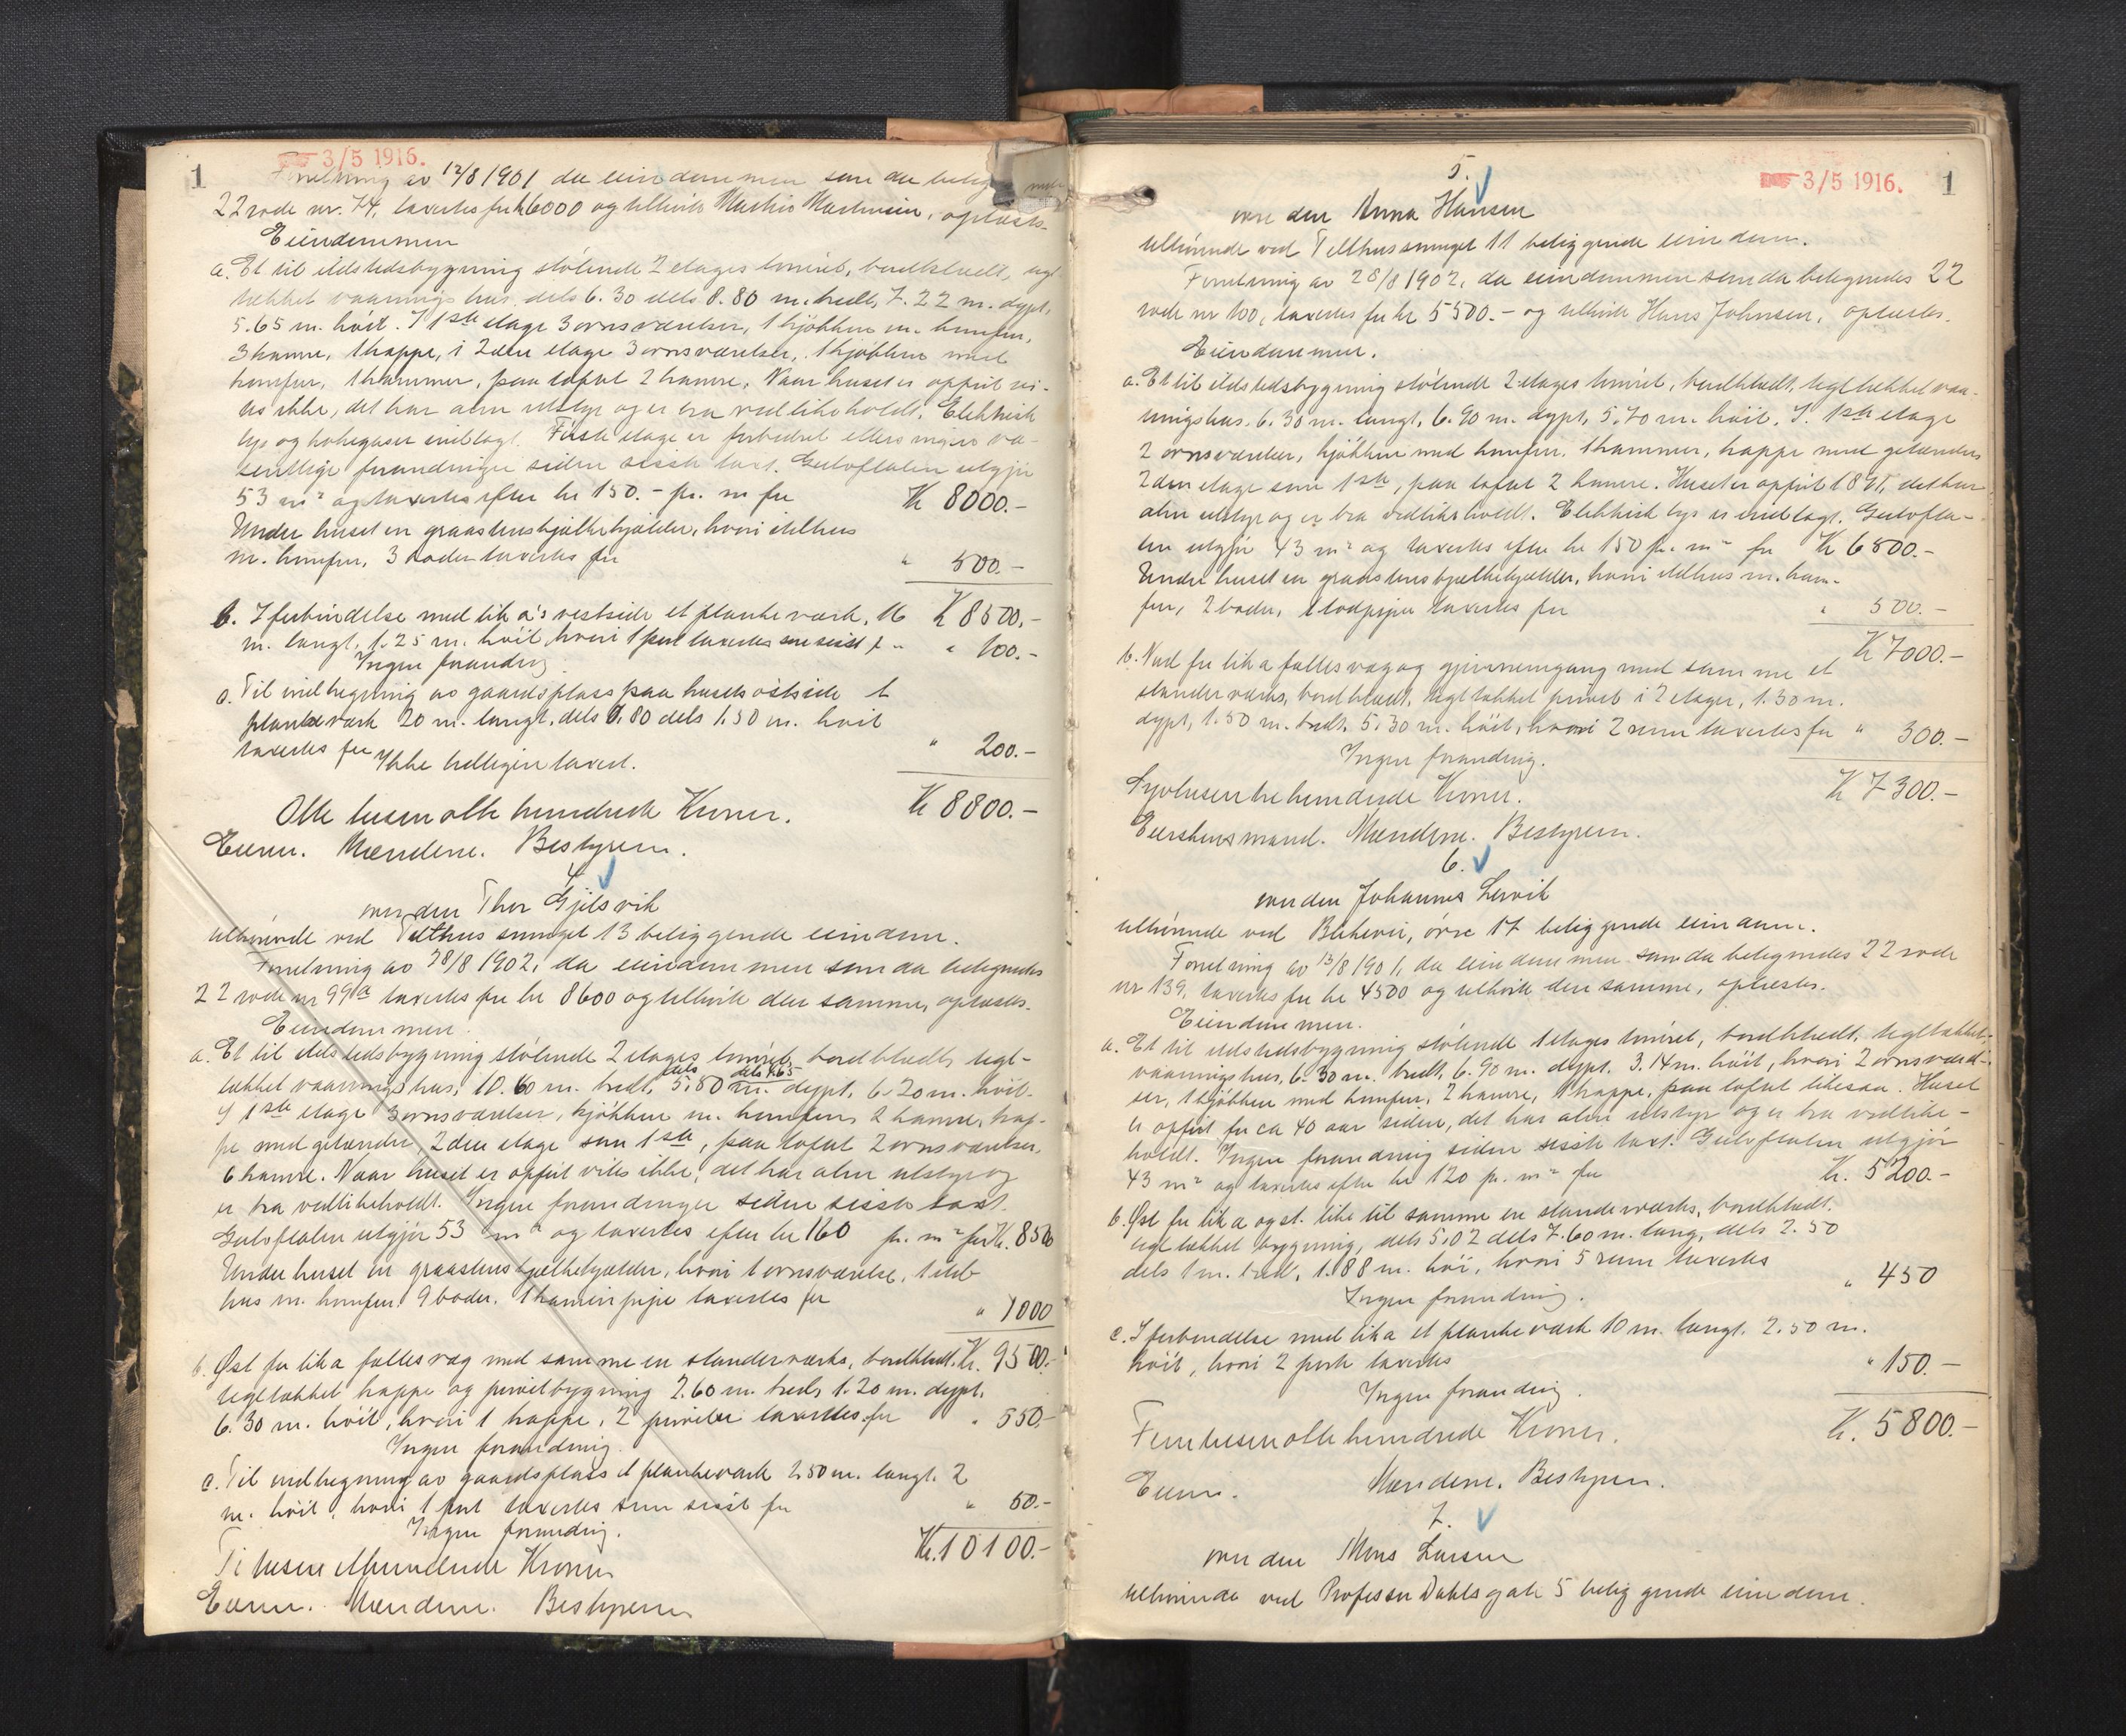 1
3/5 1916.
Forretning av 12/8 1901 da eiendommen som da beteg
22 rode nr. 74, taxertes for kr 6000 og tilhørte Martin Martinsen, oplæstes.
Eiendommen
a. Et til ildstedsbygning støtende 2 etages tømret, bordklædt, tegl
tækket vaaningshus, dels 6.30 dels 8.80 m. bredt, 7.22 m. dypt,
5.65 m. høit. I 1ste etage 3 ovnsværelser, 1 kjøkken m. komfur,
3 kamre, 1 trappe, i 2den etage 3 ovnsværelser, 1 kjøkken med
komfur, 1 kammer, paa loftet 2 kamre. Naar huset er opført vi-
tes ikke, det har alm utstyr og er bra vedlikeholdt. Elektrisk
lys og kokegaser indlagt. Første etage er forbedret ellers ingen væ-
sentlige forandringer siden sidste taxt. Gulvflaten utgjør
53 m² og taxertes efter kr 150.- pr. m for Kr 8000.-
Under huset en graastensbjælkekjælder, hvori ildhus
m. komfur, 3 boder taxertes for " 500.-
b. I forbindelse med lit a's vestside et plankeværk, 16 Kr 8500.-
m. langt, 1.25 m. høit, hvori 1 port taxertes som sidst f. " 100.-
Ingen forandring
c. Til indhegning av gaardsplass paa husets østside et
plankeværk 20 m. langt, dels 0.80 dels 1.50 m. høit
taxertes for " 200.-
Ikke tidligere taxert.
Kr 8800.-
Otte tusen otte hundrede Kroner.
Eieren. Mændene. Bestyreren.
4.
over den Thor Gjelsvik
tilhørende ved Telthussmuget 13 beliggende eiendom.
Forretning av 28/8 1902, da eiendommen som da betegnedes
22 rode nr 99a taxertes for kr 8600 og tilhørte den samme, oplæstes.
Eiendommen.
a. Et til ildstedsbygning støtende 2 etages tømret, bordklædt, tegl-
dels dels 4.65
tækket vaaningshus, 10.60 m. bredt, 5.80 m. dypt, 6.20 m. høit.
I 1ste etage 3 ovnsværelser, kjøkken m. komfur, 2 kamre, trap-
pe med gelænder, 2den etage som 1ste, paa loftet 2 ovnsværelser,
6 kamre. Naar huset er opført vites ikke, det har alm utstyr og
er bra vedlikeholdt. Ingen forandringer siden sidste taxt.
Gulvflaten utgjør 53 m² og taxertes efter kr 160 pr. m² for Kr. 8500
Under huset en graastensbjælkekjælder, hvori 1 ovnsværelse, 1 ild-
hus m. komfur, 9 boder. 1 kaminpipe taxertes for " 1000
b. Øst for lit a fælles væg med samme en standerværks, bordklædt, Kr. 9500.-
tegltækket trappe og privetbygning 2.60 m. bredt, 1.20 m. dypt,
6.30 m. høit, hvori 1 trappe, 2 priveter taxertes for " 550.-
Ingen forandring.
c. Til indhegning av gaardsplass et plankeværk 2.50 m. langt. 2
m. høit, hvori 1 port taxertes som sidst for " 50.-
Ingen forandring.
Kr. 10100.-
Ti tusen et hundrede Kroner
Eieren. Mændene. Bestyreren
3/5 1916. 1
5.
over den Anna Hansen
tilhørende ved Telthussmuget 11 beliggende eiendom.
Forretning av 28/8 1902, da eiendommen som da betegnedes 22
rode nr 100, taxertes for kr 5500.- og tilhørte Hans Johnsen, oplæstes.
Eiendommen.
a. Et til ildstedsbygning støtende 2 etages tømret, bordklædt, tegltækket vaa-
ningshus, 6.30 m. langt, 6.90 m. dypt, 5.70 m. høit. I 1ste etage
2 ovnsværelser, kjøkken med komfur, 1 kammer, trappe med gelænder,
2den etage som 1ste, paa loftet 2 kamre. Huset er opført, det har
alm utstyr og er bra vedlikeholdt. Elektrisk lys er indlagt. Gulvfla-
ten utgjør 43 m² og taxertes efter kr 150 pr. m² for Kr 6500.-
Under huset en graastensbjælkekjælder, hvori ildhus m. kom-
fur, 2 boder, 1 taxertes for " 500.-
Kr 7000.-
b. Nord for lit a fælles væg og gjennemgang med samme et
standerværks, bordklædt, tegltækket privet i 2 etager, 1.30 m.
dypt, 1.50 m. bredt, 5.30 m. høit, hvori 2 rum taxertes for " 300.-
Ingen forandring.
Syvtusentrehundrede Kroner. Kr 7300.-
Eierskens mand. Mændene. Bestyreren.
6.
over den Johannes Lervik
tilhørende ved Blekevei, øvre 17 beliggende eiendom.
Forretning av 13/8 1901, da eiendommen som da betegnedes 22 rode
nr 139, taxertes for kr 4500 og tilhørte den samme, oplæstes.
Eiendommen.
a. Et til ildstedsbygning støtende 1 etages tømret, bordklædt, tegltækket,
vaaningshus, 6.30 m. bredt, 6.90 m. dypt. 3.14 m. høit, hvori 2 ovnsværel-
ser, 1 kjøkken med komfur, 2 kamre, 1 trappe, paa loftet likesaa. Huset
er opført for ca 40 aar siden, det har alm utstyr og er bra vedlike-
holdt. Ingen forandring siden sidste taxt. Gulvflaten utgjør
43 m² og taxertes efter kr 120 pr. m² for Kr. 5200.-
b. Øst for lit a og st. like til samme en standerværks, bordklædt,
tegltækket bygning, dels 5.02 dels 7.60 m. lang, dels 2.50
dels 1 m. bred, 1.88 m. høi, hvori 5 rum taxertes " 450
Ingen forandring.
c. I forbindelse med lit a et plankeværk 10 m. langt. 2.50 m.
høit, hvori 2 porte taxertes " 150.-
Ingen forandring.
Femtusenottehundrede Kroner. Kr. 5800.-
Eieren. Mændene. Bestyreren.
7.
over den Mons Larsen
tilhørende ved Professor Dahls gate 5 beliggende eiendom.